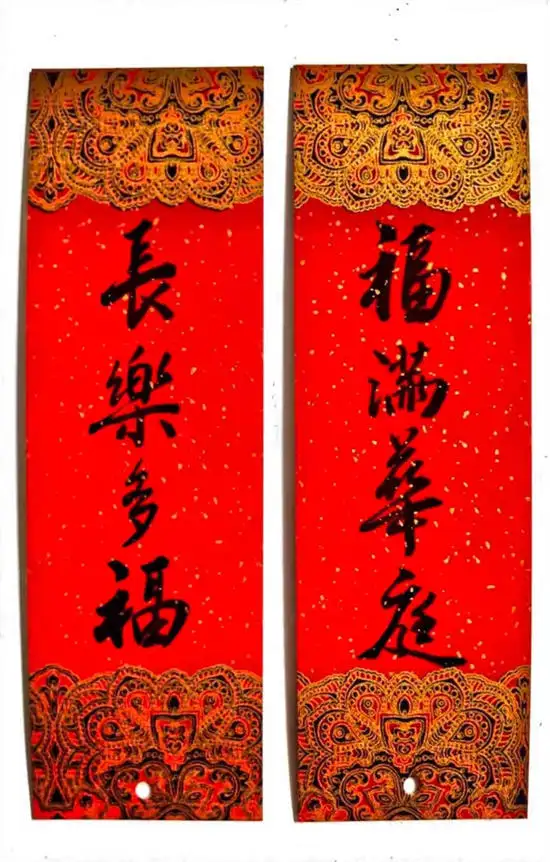 福滿華庭
長樂多福